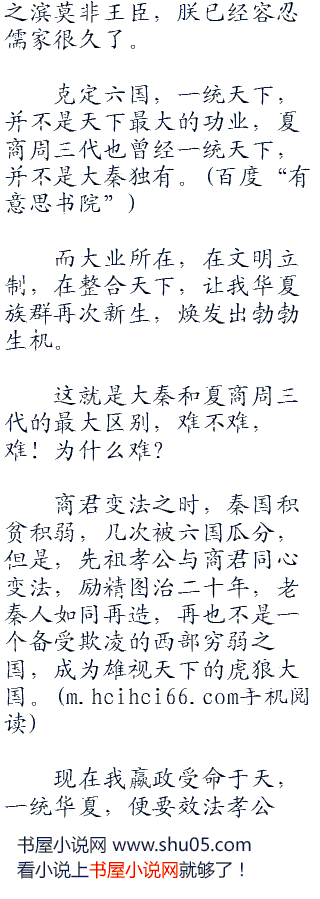 之滨莫非王臣，朕已经容忍
儒家很久了。
克定六国，一统天下，
并不是天下最大的功业，夏
商周三代也曾经一统天下，
并不是大秦独有。(百度“有
意思书院”)
而大业所在，在文明立
制，在整合天下，让我华夏
族群再次新生，焕发出勃勃
生机。
这就是大秦和夏商周三
代的最大区别，难不难，
难！为什么难？
商君变法之时，秦国积
贫积弱，几次被六国瓜分，
但是，先祖孝公与商君同心
变法，励精图治二十年，老
秦人如同再造，再也不是一
个备受欺凌的西部穷弱之
国，成为雄视天下的虎狼大
国。(m.hcihci66.com手机阅
读)
现在我嬴政受命于天，
一统华夏，便要效法孝公
书屋小说网 www.shu05.com
看小说上书屋小说网就够了！